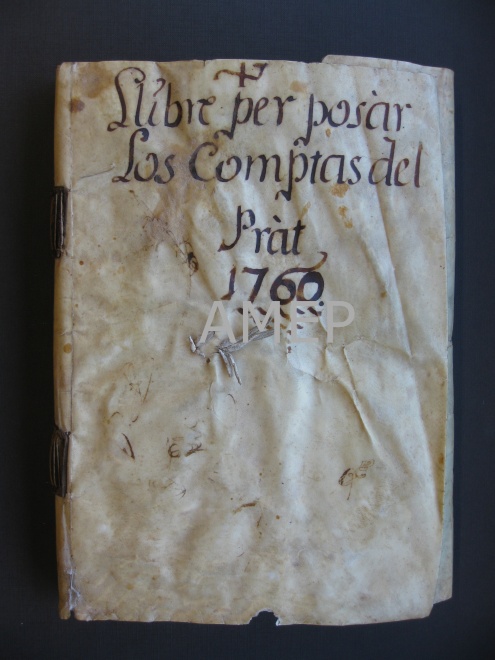 Llibre per posàr
Los Comptas del
Pràt
1760
AMEP